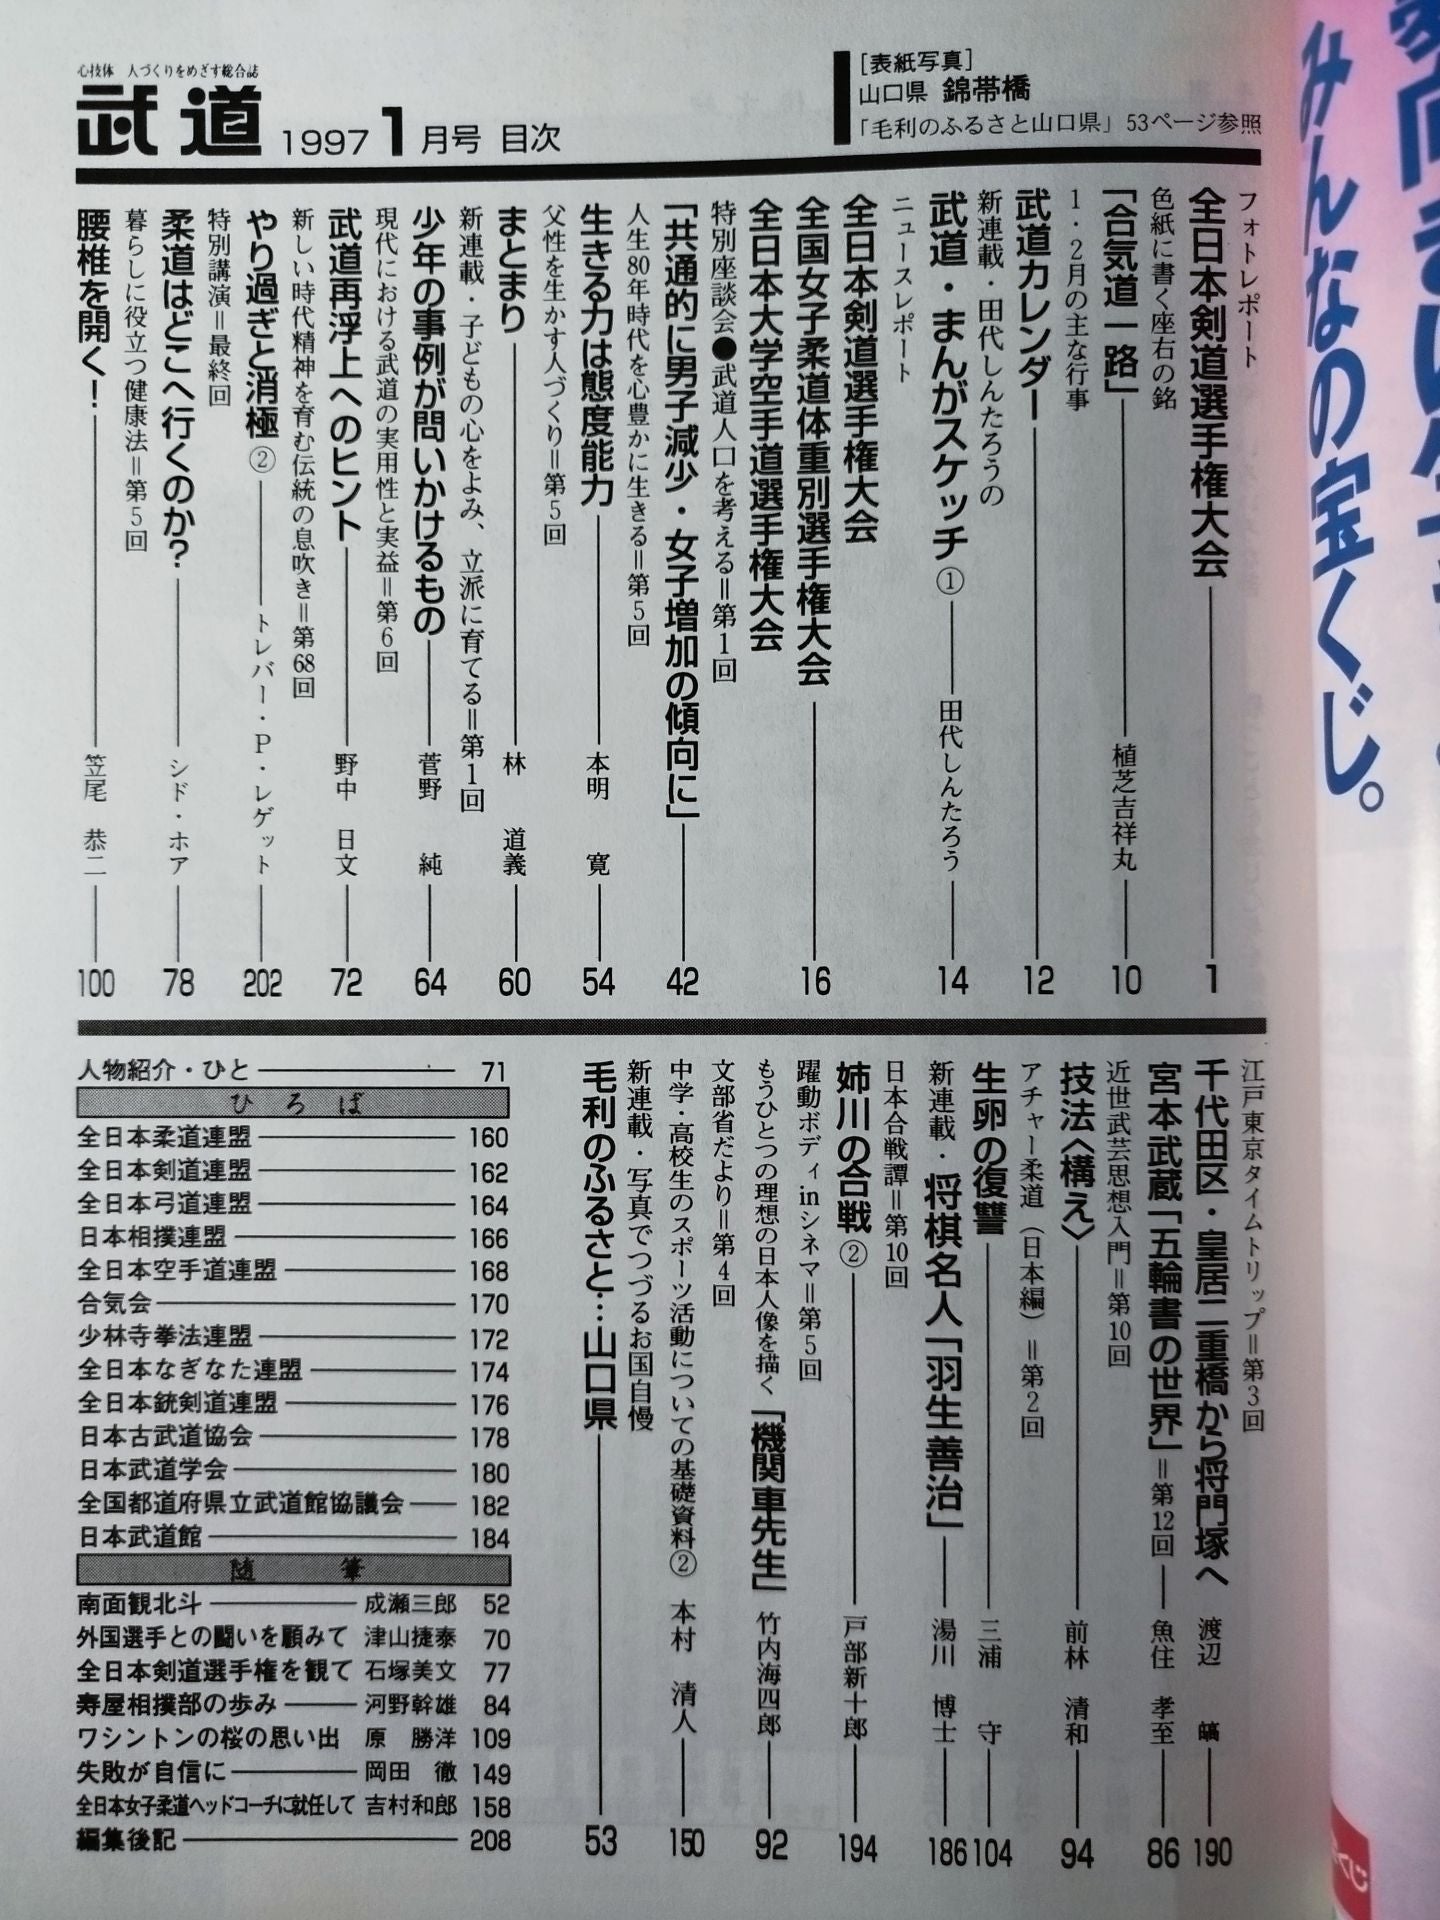 心技体 人づくりをめざす総合誌
武道 1997 1月号 目次
[表紙写真]
山口県 錦帯橋
「毛利のふるさと山口県」53ページ参照
フォトレポート
全日本剣道選手権大会 1
色紙に書く座右の銘
「合気道一路」 植芝吉祥丸 10
1・2月の主な行事
武道カレンダー 12
新連載・田代しんたろうの
武道・まんがスケッチ① 田代しんたろう 14
ニュースレポート
全日本剣道選手権大会
全国女子柔道体重別選手権大会 16
全日本大学空手道選手権大会
特別座談会●武道人口を考える=第1回
「共通的に男子減少・女子増加の傾向に」 42
人生80年時代を心豊かに生きる=第5回
生きる力は態度能力 本明 寛 54
父性を生かす人づくり=第5回
まとまり 林 道義 60
新連載・子どもの心をよみ、立派に育てる=第1回
少年の事例が問いかけるもの 菅野 純 64
現代における武道の実用性と実益=第6回
武道再浮上へのヒント 野中 日文 72
新しい時代精神を育む伝統の息吹き=第68回
やり過ぎと消極② トレバー・P・レゲット 202
特別講演=最終回
柔道はどこへ行くのか? シド・ホア 78
暮らしに役立つ健康法=第5回
腰椎を開く! 笠尾 恭二 100
江戸東京タイムトリップ=第3回
千代田区・皇居二重橋から将門塚へ 渡辺 190
宮本武蔵「五輪書の世界」=第12回 魚住 孝至 86
近世武芸思想入門=第10回
技法〈構え〉 前林 清和 94
アチャー柔道(日本編)=第2回
生卵の復讐 三浦 守 104
新連載・将棋名人「羽生善治」 湯川 博士 186
日本合戦譚=第10回
姉川の合戦② 戸部新十郎 194
躍動ボディinシネマ=第5回
もうひとつの理想の日本人像を描く「機関車先生」 竹内海四郎 92
文部省だより=第4回
中学・高校生のスポーツ活動についての基礎資料② 本村 清人 150
新連載・写真でつづるお国自慢
毛利のふるさと…山口県 53
人物紹介・ひと 71
ひろば
全日本柔道連盟 160
全日本剣道連盟 162
全日本弓道連盟 164
日本相撲連盟 166
全日本空手道連盟 168
合気会 170
少林寺拳法連盟 172
全日本なぎなた連盟 174
全日本銃剣道連盟 176
日本古武道協会 178
日本武道学会 180
全国都道府県立武道館協議会 182
日本武道館 184
随筆
南面観北斗 成瀬三郎 52
外国選手との闘いを顧みて 津山捷泰 70
全日本剣道選手権を観て 石塚美文 77
寿屋相撲部の歩み 河野幹雄 84
ワシントンの桜の思い出 原 勝洋 109
失敗が自信に 岡田 徹 149
全日本女子柔道ヘッドコーチに就任して 吉村和郎 158
編集後記 208
みんなの宝くじ。